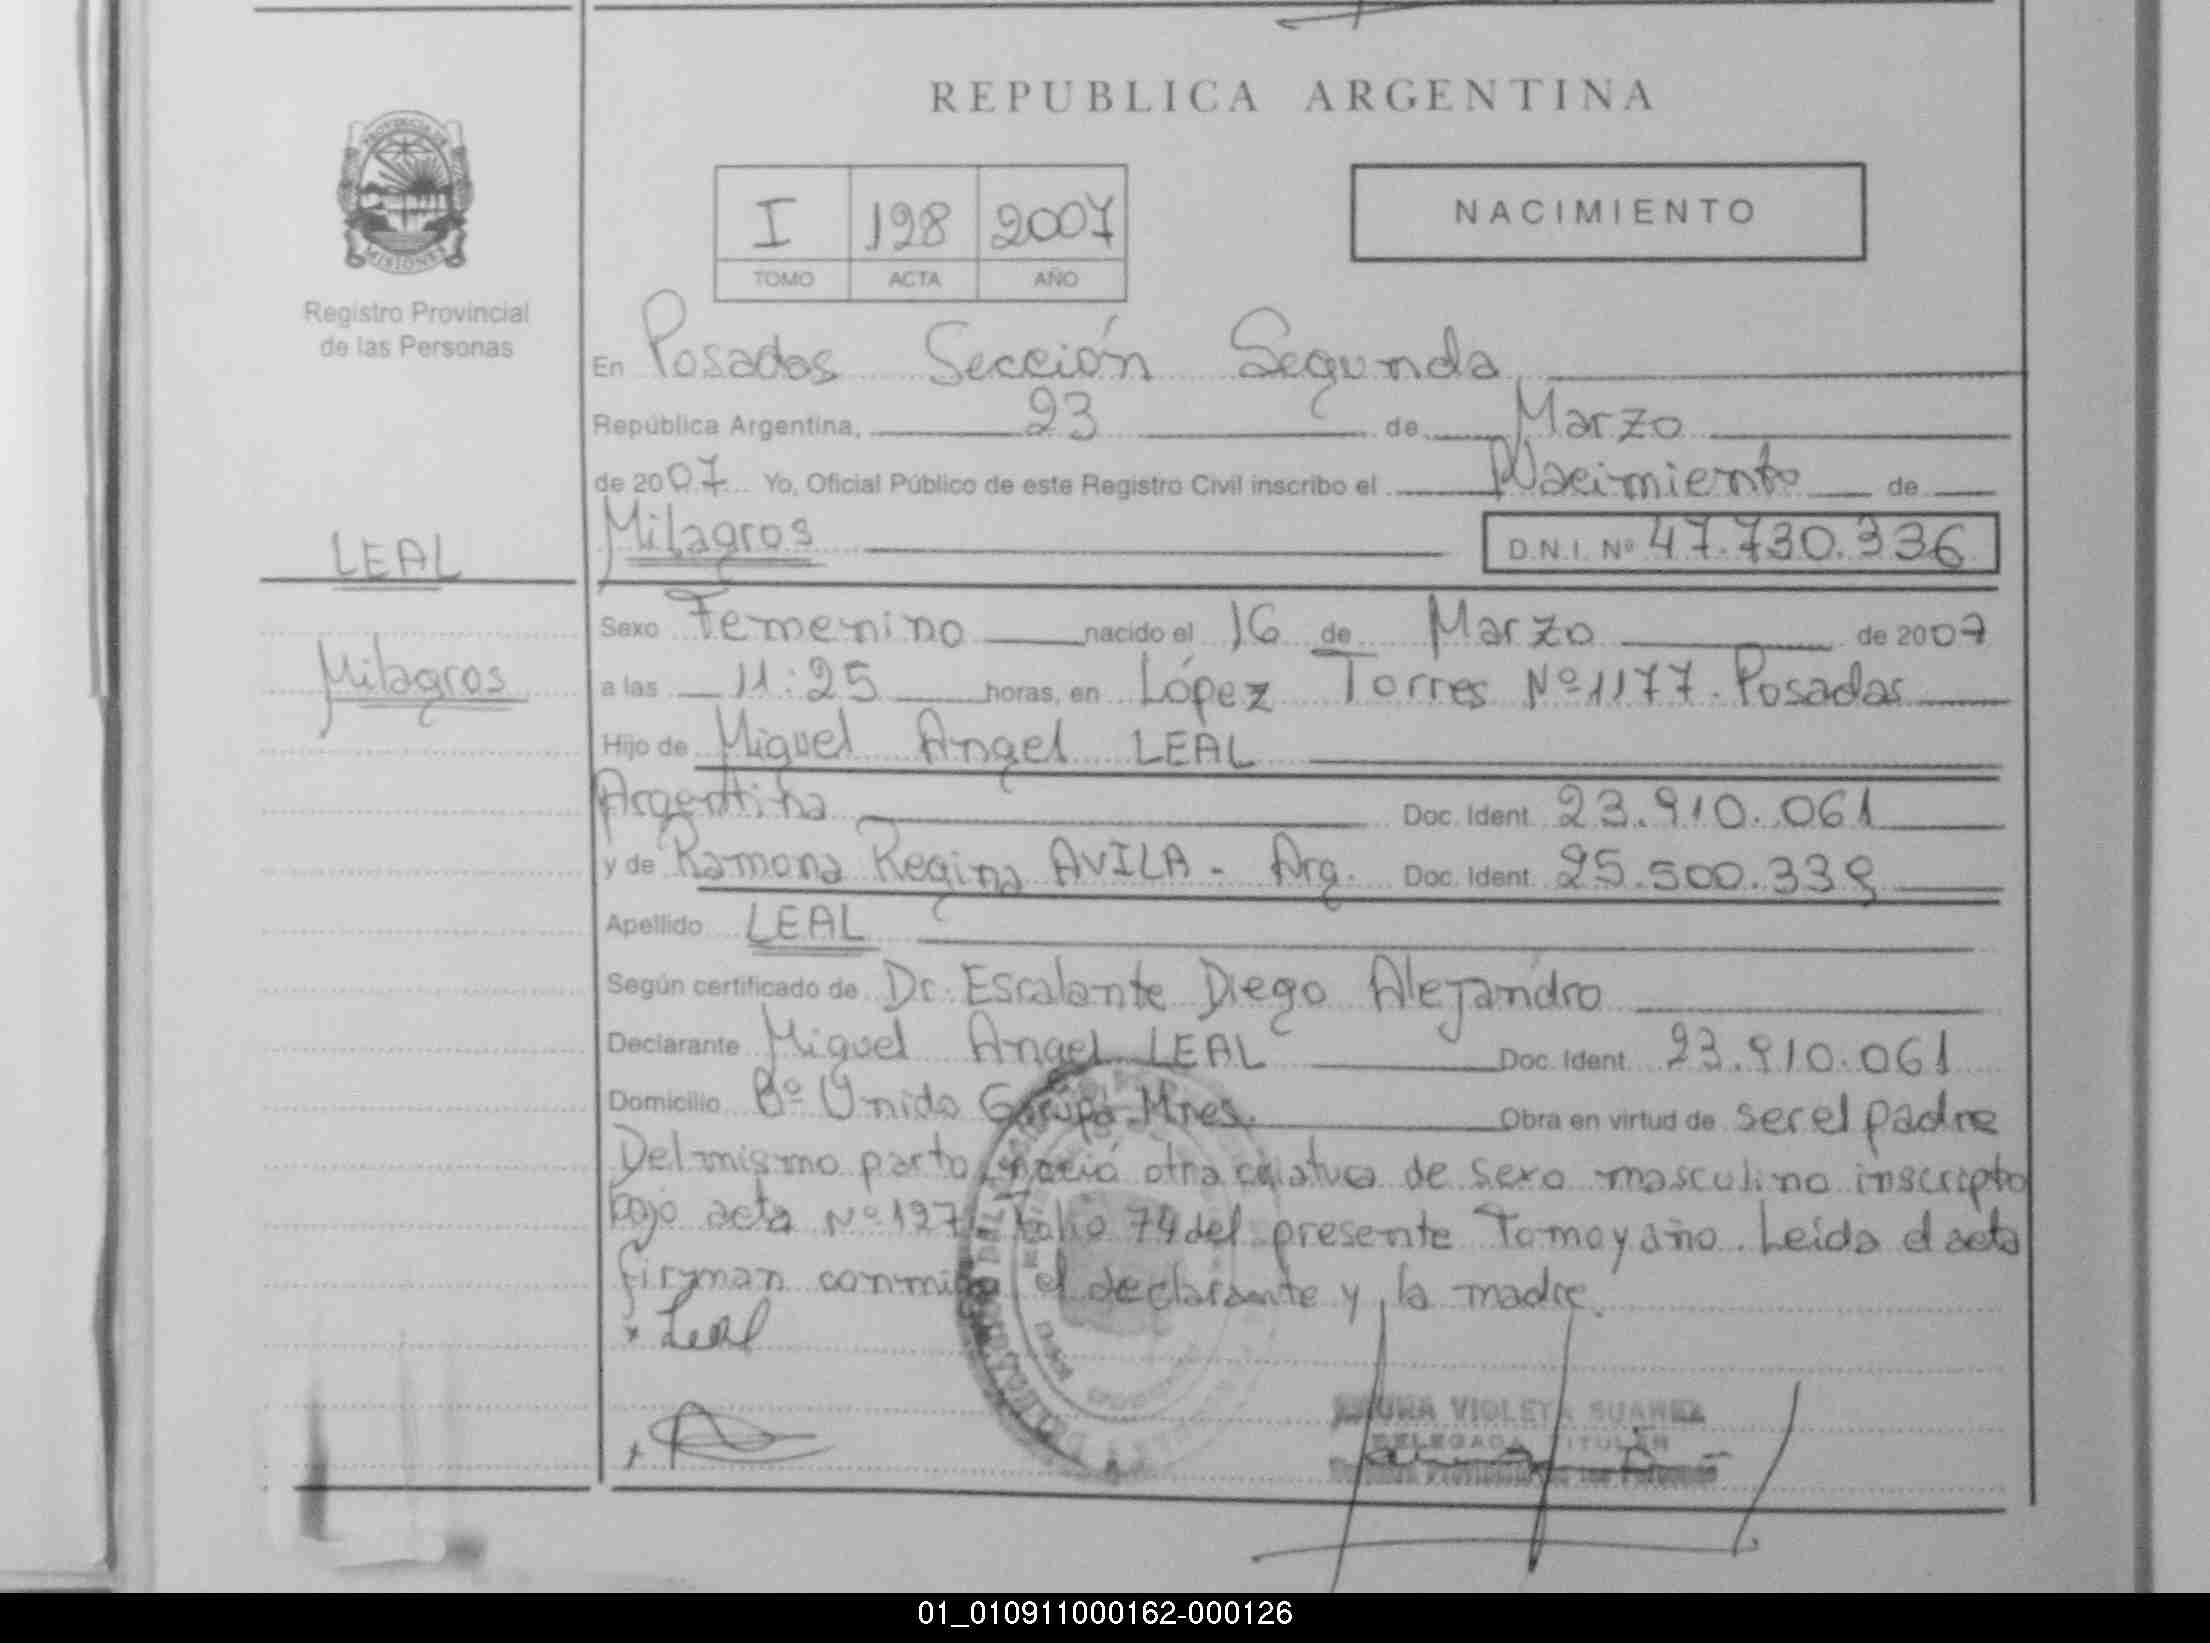 REPUBLICA ARGENTINA
PROVINCIA DE
MISIONES
Registro Provincial
de las Personas
I 198 2007
TOMO ACTA AÑO
NACIMIENTO
En Posadas Sección Segunda
República Argentina, 23 de Marzo
de 2007 Yo, Oficial Público de este Registro Civil inscribo el Nacimiento de
LEAL
Milagros D.N.I. Nº 47.730.336
Sexo Femenino nacido el 16 de Marzo de 2007
Milagros
a las 11:25 horas, en López Torres Nº 1177. Posadas
Hijo de Miguel Angel LEAL
Argentina Doc. Ident. 23.910.061
y de Ramona Regina AVILA - Arg. Doc. Ident. 25.500.339
Apellido LEAL
Según certificado de Dr. Escalante Diego Alejandro
Declarante Miguel Angel LEAL Doc. Ident. 23.910.061
Domicilio Bº Unido Garupá-Mnes. Obra en virtud de ser el padre
Del mismo parto nació otra criatura de sexo masculino inscripto
bajo acta Nº 197 Folio 74 del presente Tomo y año. Leida el acta
firman conmigo el declarante y la madre.
x Leal
x
VIOLETA SUAREZ
DELEGADA TITULAR
01_010911000162-000126